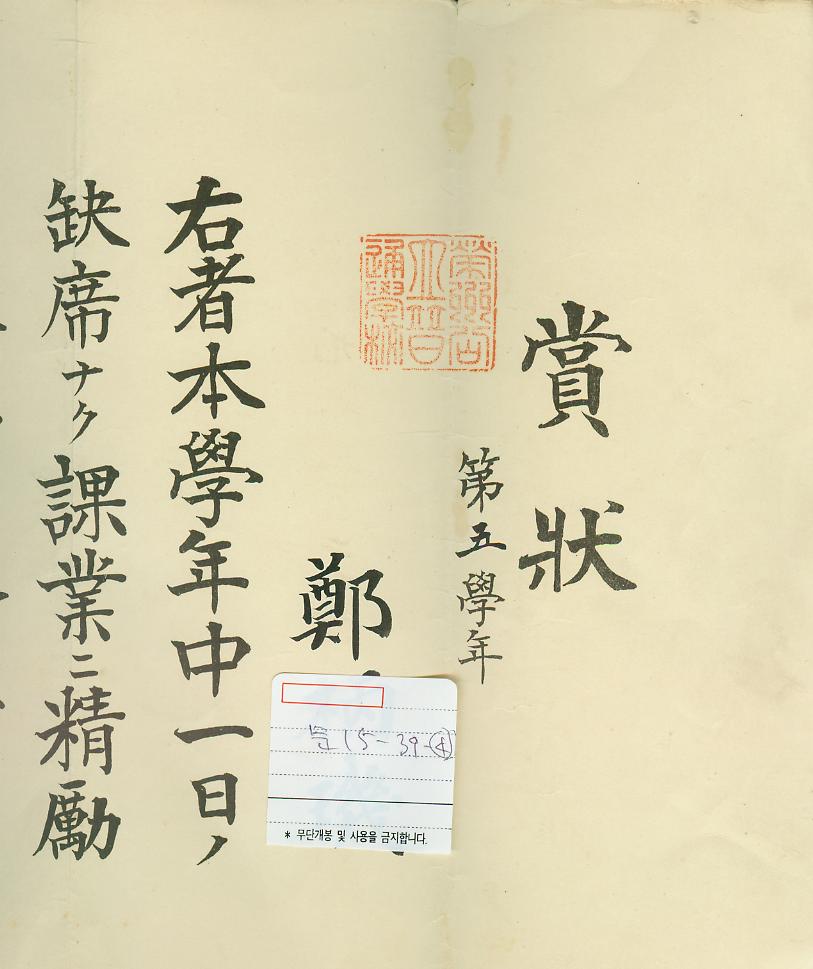 賞狀
第五學年
立普
通學校
鄭
右者本學年中一日ノ
缺席ナク課業ニ精勵
15-39-④
* 무단개봉 및 사용을 금지합니다.